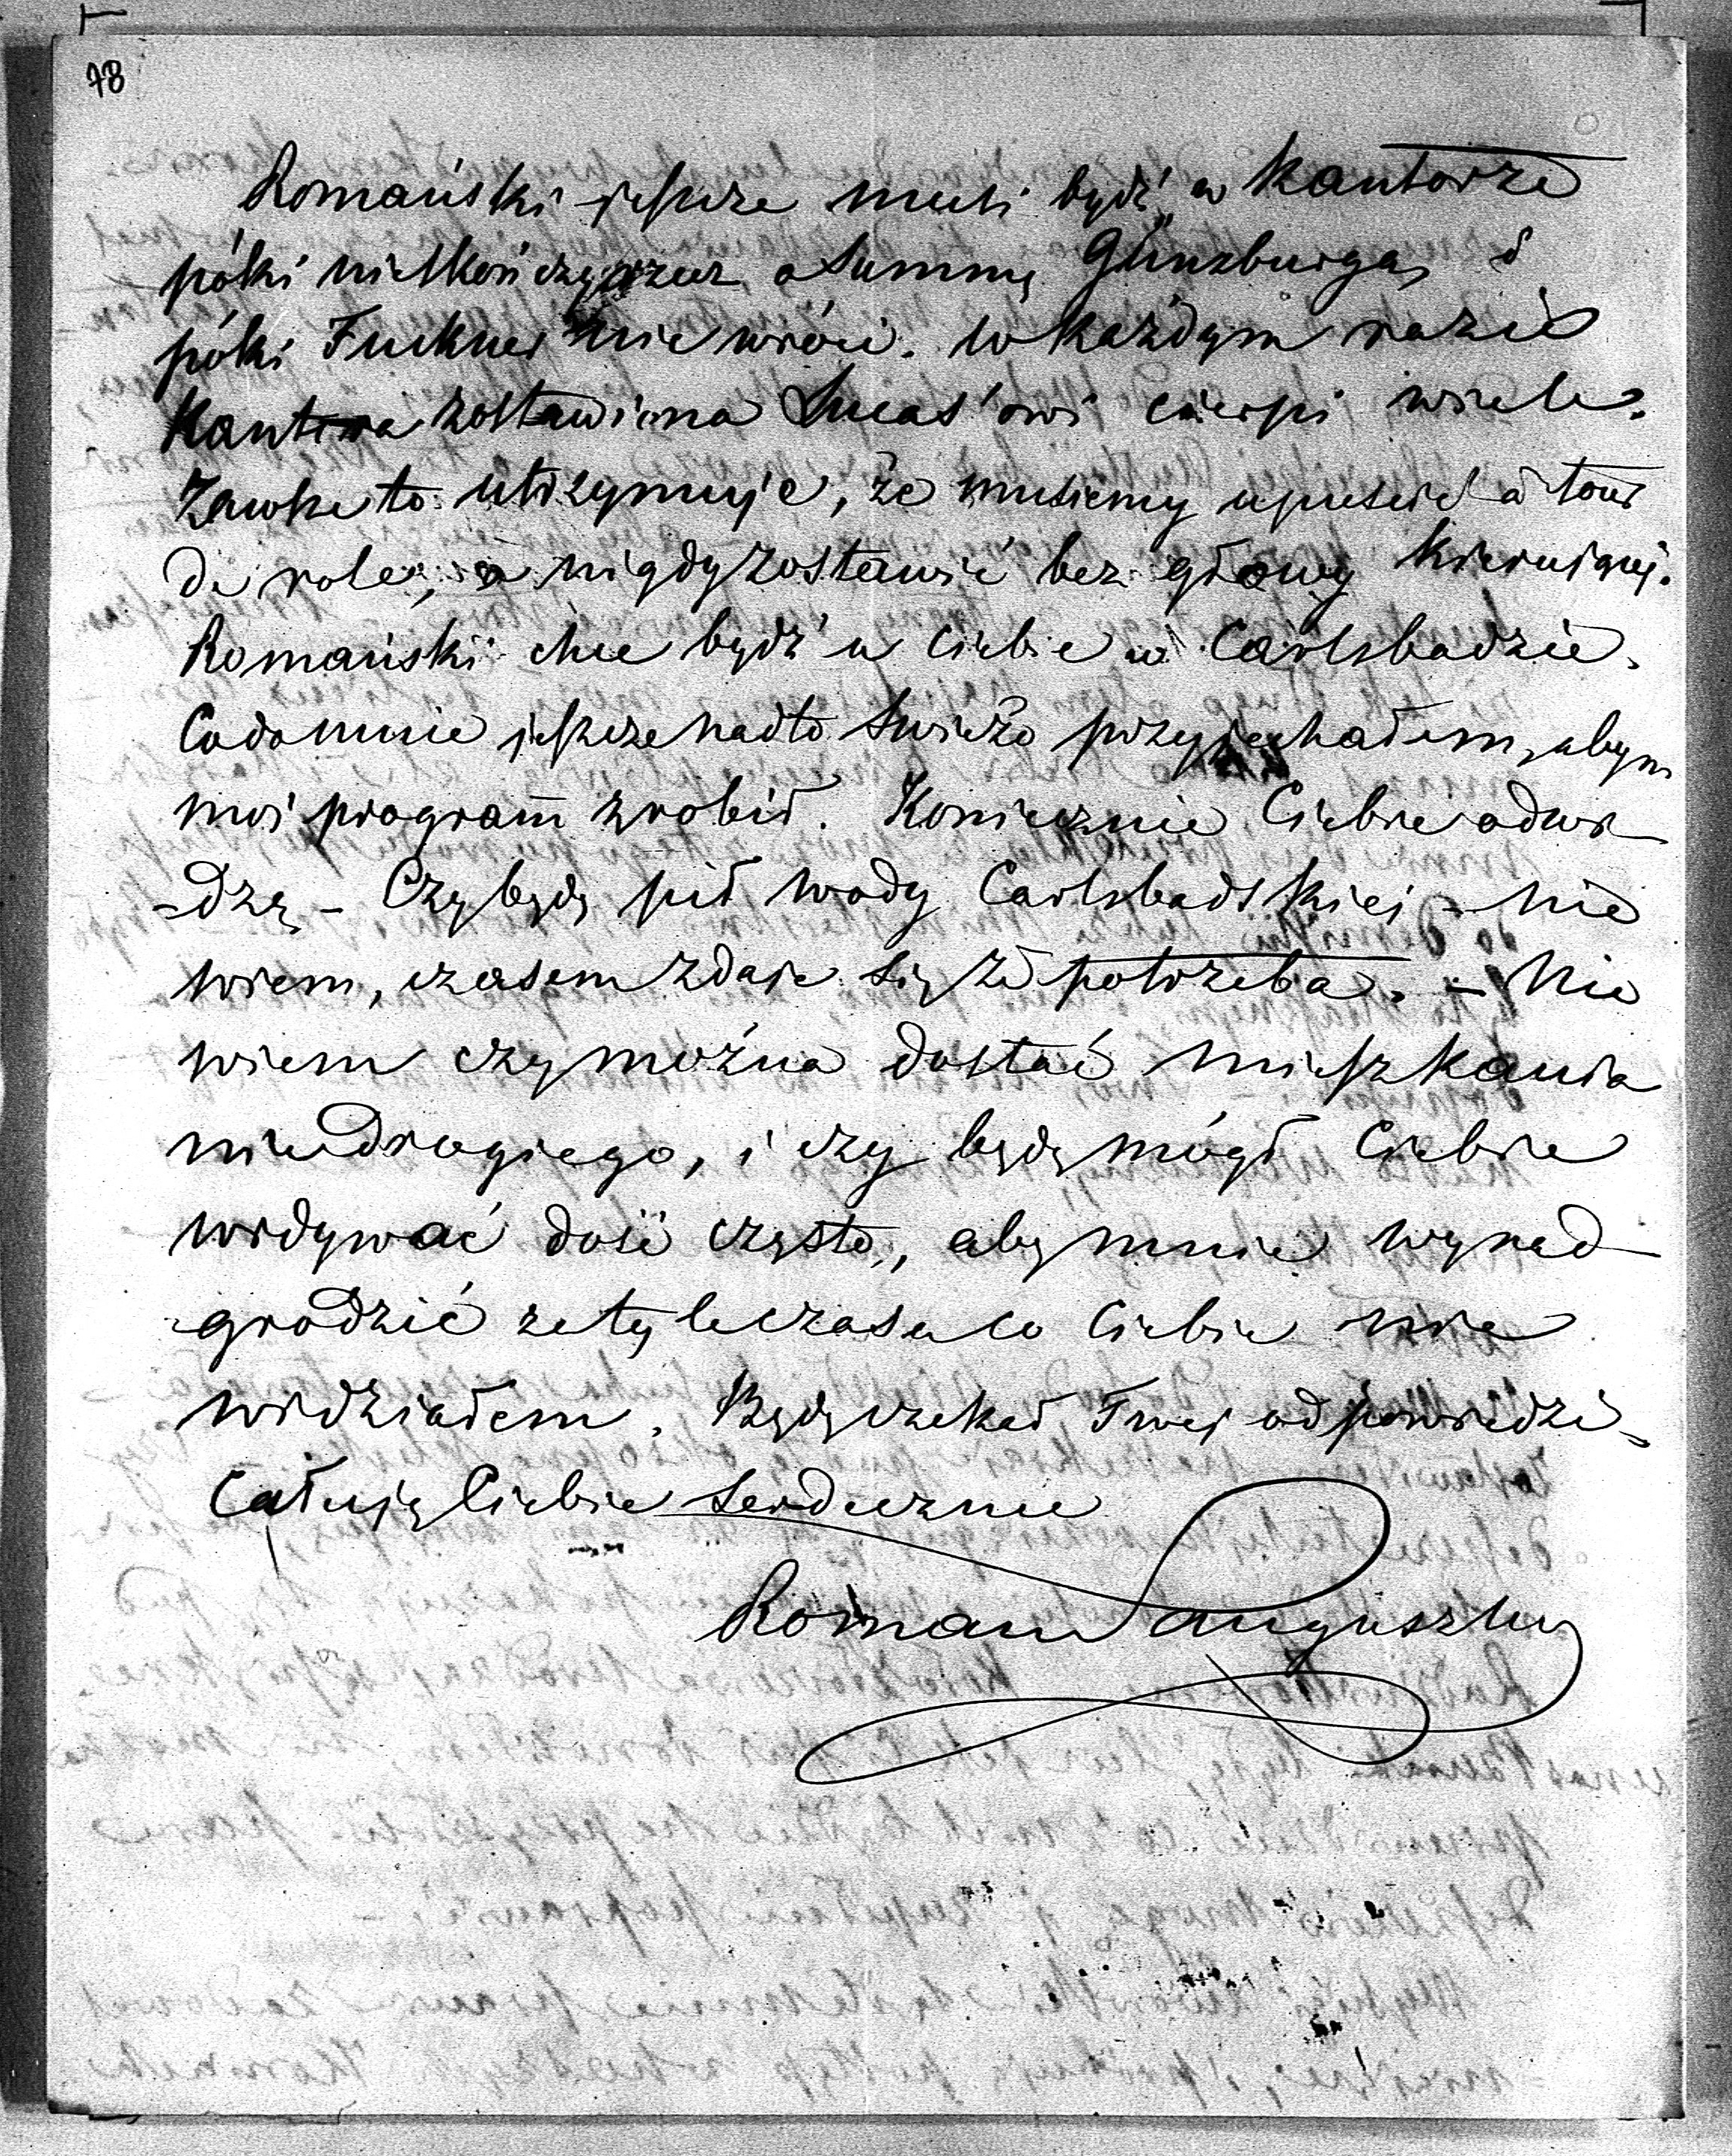 78
Romański jeszcze musi bydź w Kantorze
póki nieskończy rzecz o Summę Günzburga, i
póki Fuckner nie wróci. W każdym razie
Kantora zostawiona Lucas'owi cierpi wiele.
Zawsze to utrzymuje, że musiemy upuścić à tour
de role, a nigdy zostawić bez głowy Kierującej.
Romański chce bydź u Ciebie w Carlsbadzie.
Co do mnie jeszcze nadto świeżo przyjechałem, abym
mój program zrobił. Koniecznie Ciebie odwie-
-dzę - Czy będę pił wody Carlsbadskiej - nie
wiem, czasem zdaje się że potrzeba. - Nie
wiem czy można dostać mieszkania
niedrogiego, i czy będę mógł Ciebie
widywać dość często, aby mnie wynad-
grodzić za tyle czasu co Ciebie nie
widziałem. Będę czekał Twej odpowiedzi -
Całuję Ciebie serdecznie
Roman Sanguszko